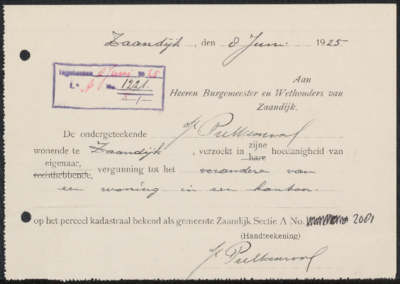 Zaandijk, den 8 Juni 1925
Ingekomen 8 Juni 1925
L. A No. 1221.
Aan
Heeren Burgemeester en Wethouders van
Zaandijk.
De ondergeteekende
zijne
wonende te Zaandijk, verzoekt in hare hoedanigheid van
eigenaar,
rechthebbende, vergunning tot het veranderen van
een woning in een kantoor
op het perceel kadastraal bekend als gemeente Zaandijk Sectie A No. 2081
(Handteekening)